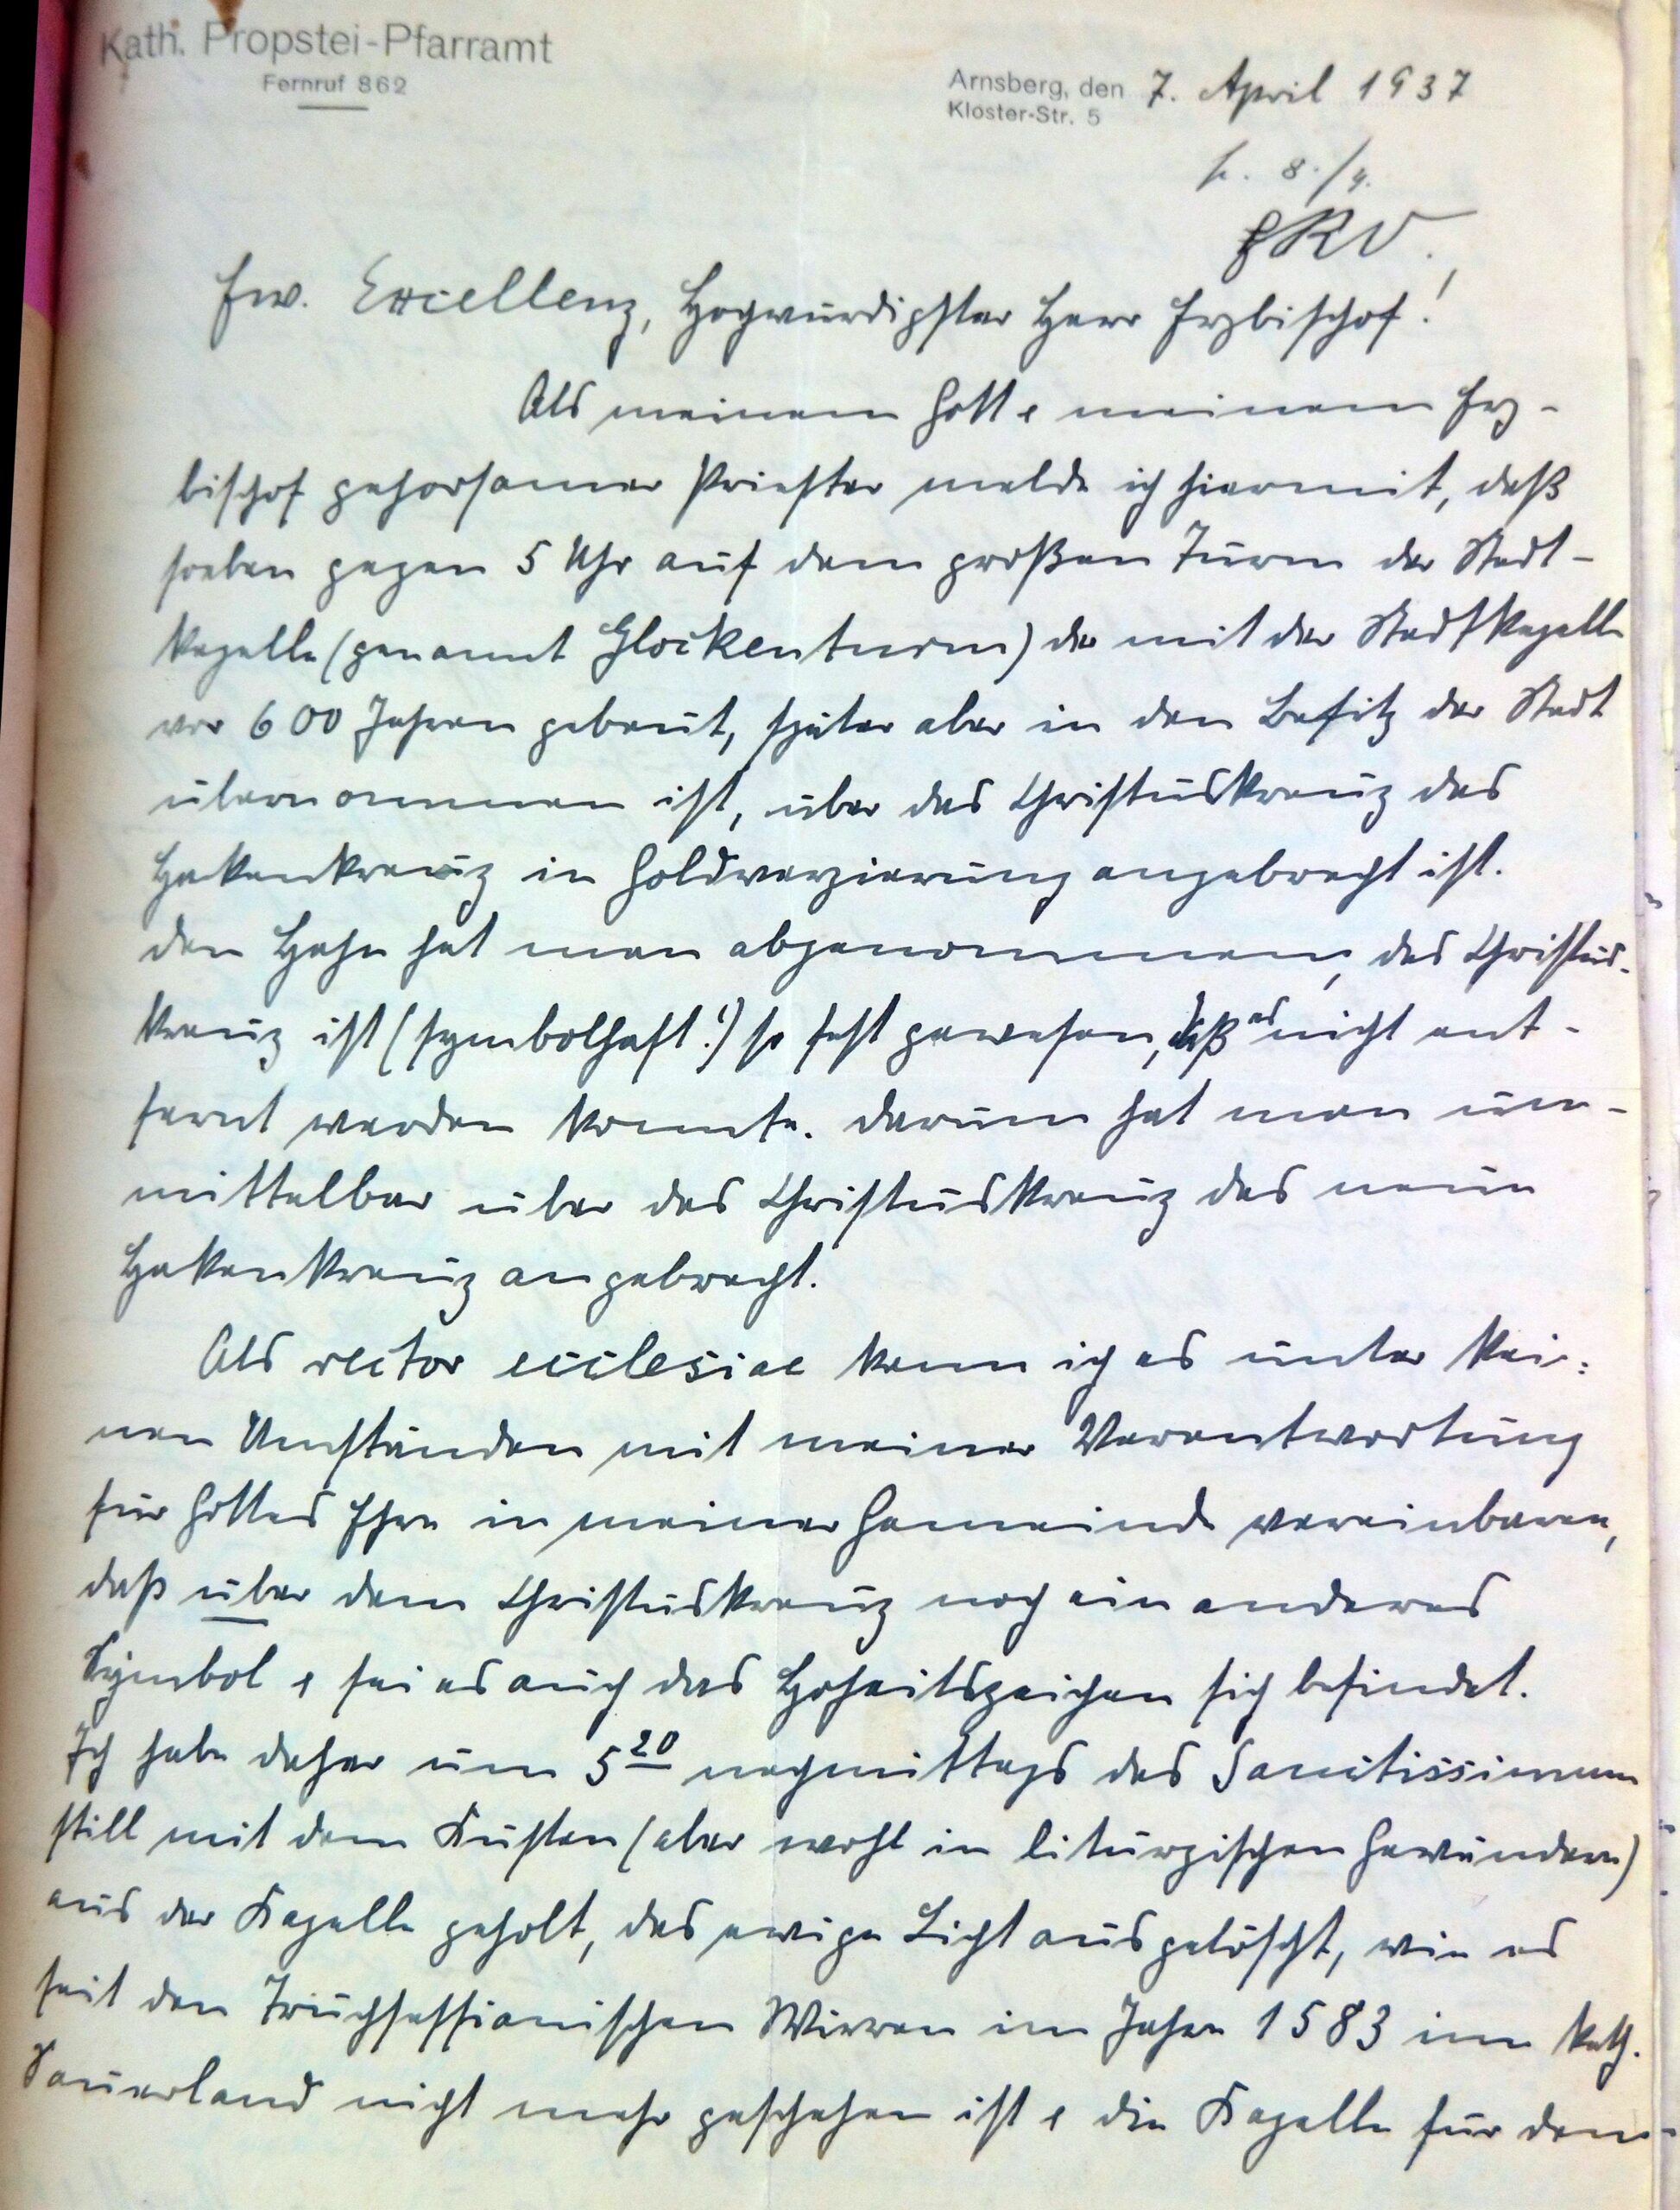 Kath. Propstei-Pfarramt
Fernruf 862
Arnsberg, den 7. April 1937
Kloster-Str. 5
8./4.
Ew. Excellenz, Hochwürdigster Herr Erzbischof!
Als meinem Gott u meinem Erz-
bischof gehorsamer Priester melde ich hiermit, daß
soeben gegen 5 Uhr auf dem großen Turm der Stadt-
kapelle (genannt Glockenturm) der mit der Stadtkapelle
vor 600 Jahren gebaut, später aber in den Besitz der Stadt
übernommen ist, über das Christuskreuz das
Hakenkreuz in Goldverzierung angebracht ist.
den Hahn hat man abgenommen, das Christus-
kreuz ist (symbolhaft!) so fest gewesen, daß es nicht ent-
fernt werden konnte. darum hat man un-
mittelbar über das Christuskreuz das neue
Hakenkreuz angebracht.
Als rector ecclesiae kann ich es unter kei-
nen Umständen mit meiner Verantwortung
für Gottes Ehre in meiner Gemeinde vereinbaren,
daß über dem Christuskreuz noch ein anderes
Symbol u sei es auch das Hoheitszeichen sich befindet.
Ich habe daher um 5 20 nachmittags das Sanctissimum
still mit dem Küster (aber wohl in liturgischen Gewändern)
aus der Kapelle geholt, das ewige Licht ausgelöscht, wie es
seit den Truchsessianischen Wirren im Jahre 1583 im kath.
Sauerland nicht mehr geschehen ist u die Kapelle für den-